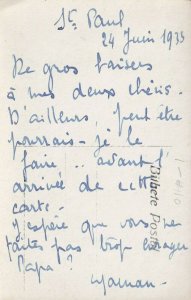 St Paul
24 Juin 1933
De gros baisers
à mes deux chéris.
D'ailleurs, peut être
pourrais-je le
faire.. avant l'
arrivée de cette
carte.
J'espère que vous ne
faites pas trop enrager
Papa?
Maman.